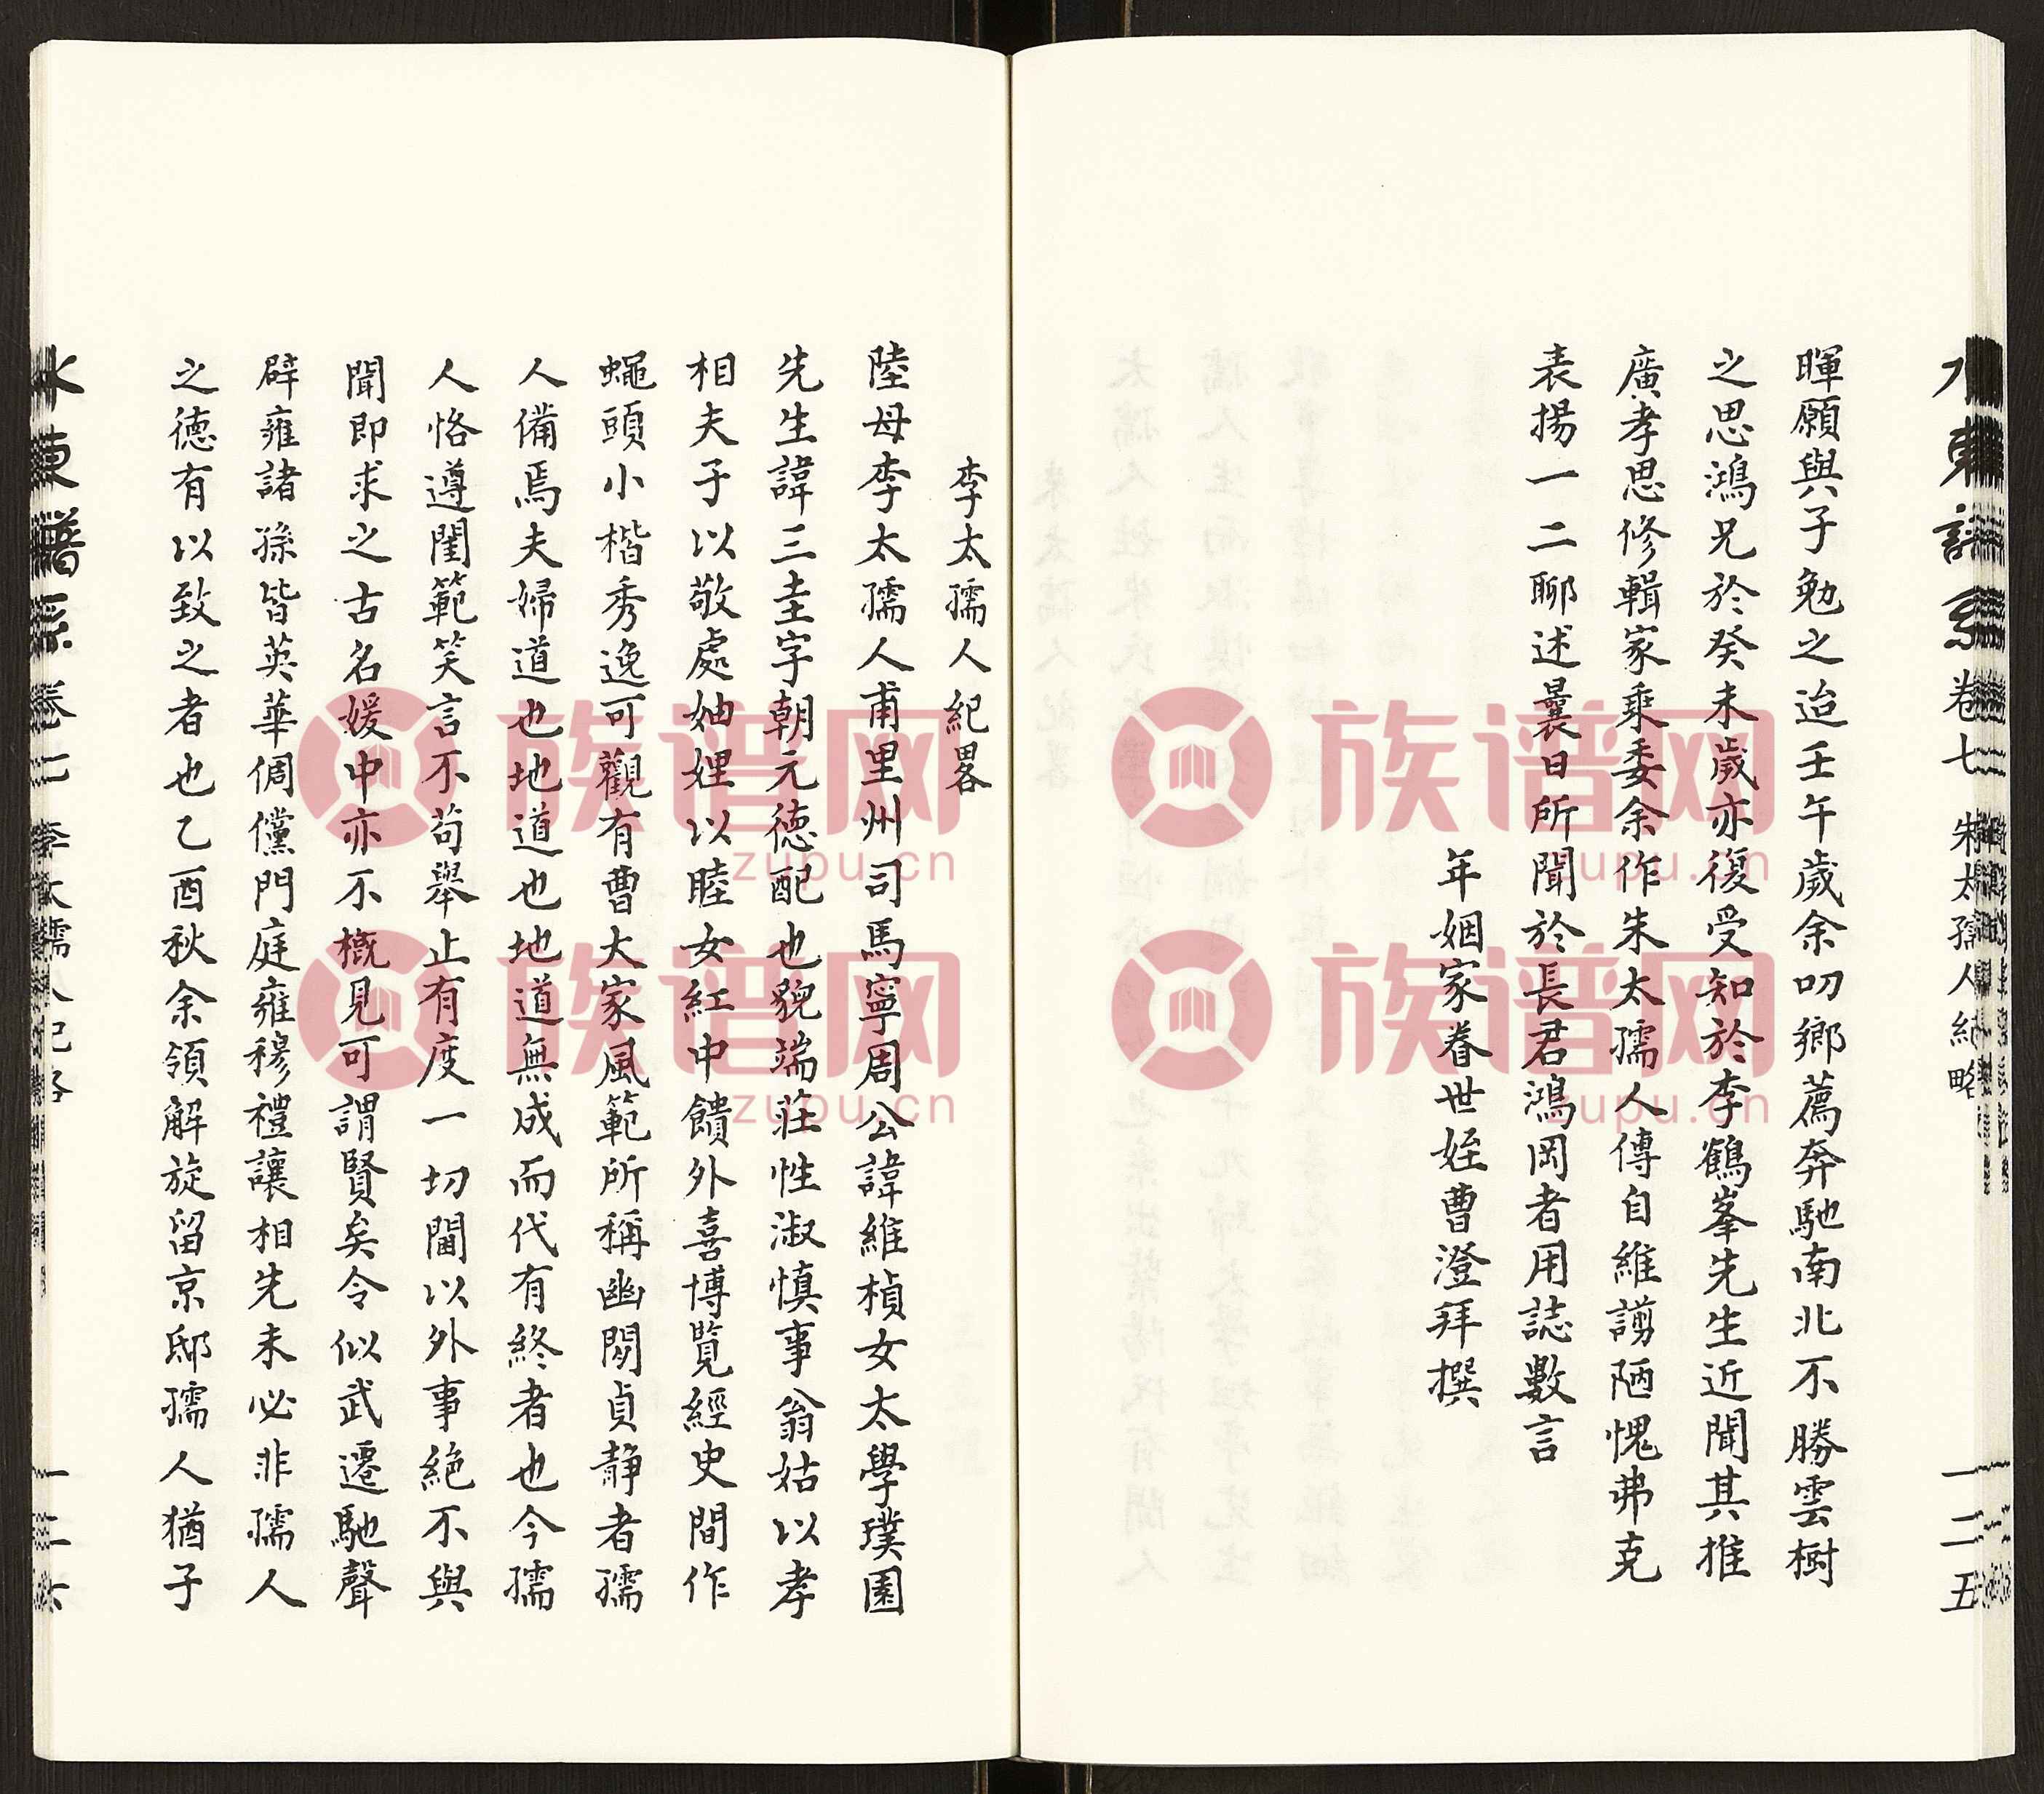 暉願與子勉之迨壬午歲余叨鄉薦奔馳南北不勝雲樹
之思鴻兄於癸未歲亦復受知於李鶴峯先生近聞其推
廣孝思修輯家乘委余作朱太孺人傳自維謭陋愧弗克
表揚一二聊述曩日所聞於長君鴻岡者用誌數言
年姻家眷世姪曹澄拜撰
卷七 朱太孺人紀略
一二五
李太孺人紀畧
陸母李太孺人甫里州司馬寧周公諱維楨女太學璞園
先生諱三圭字朝元德配也貌端莊性淑慎事翁姑以孝
相夫子以敬處妯娌以睦女紅中饋外喜博覽經史間作
蠅頭小楷秀逸可觀有曹大家風範所稱幽閒貞靜者孺
人備焉夫婦道也地道也地道無成而代有終者也今孺
人恪遵閨範笑言不苟舉止有度一切閫以外事絶不與
聞即求之古名媛中亦不概見可謂賢矣令似武遷馳聲
辟雍諸孫皆英華倜儻門庭雍穆禮讓相先未必非孺人
之德有以致之者也乙酉秋余領解旋留京邸孺人猶子
族谱网
zupu.cn
族谱网
zupu.cn
族谱网
zupu.cn
族谱网
zupu.cn